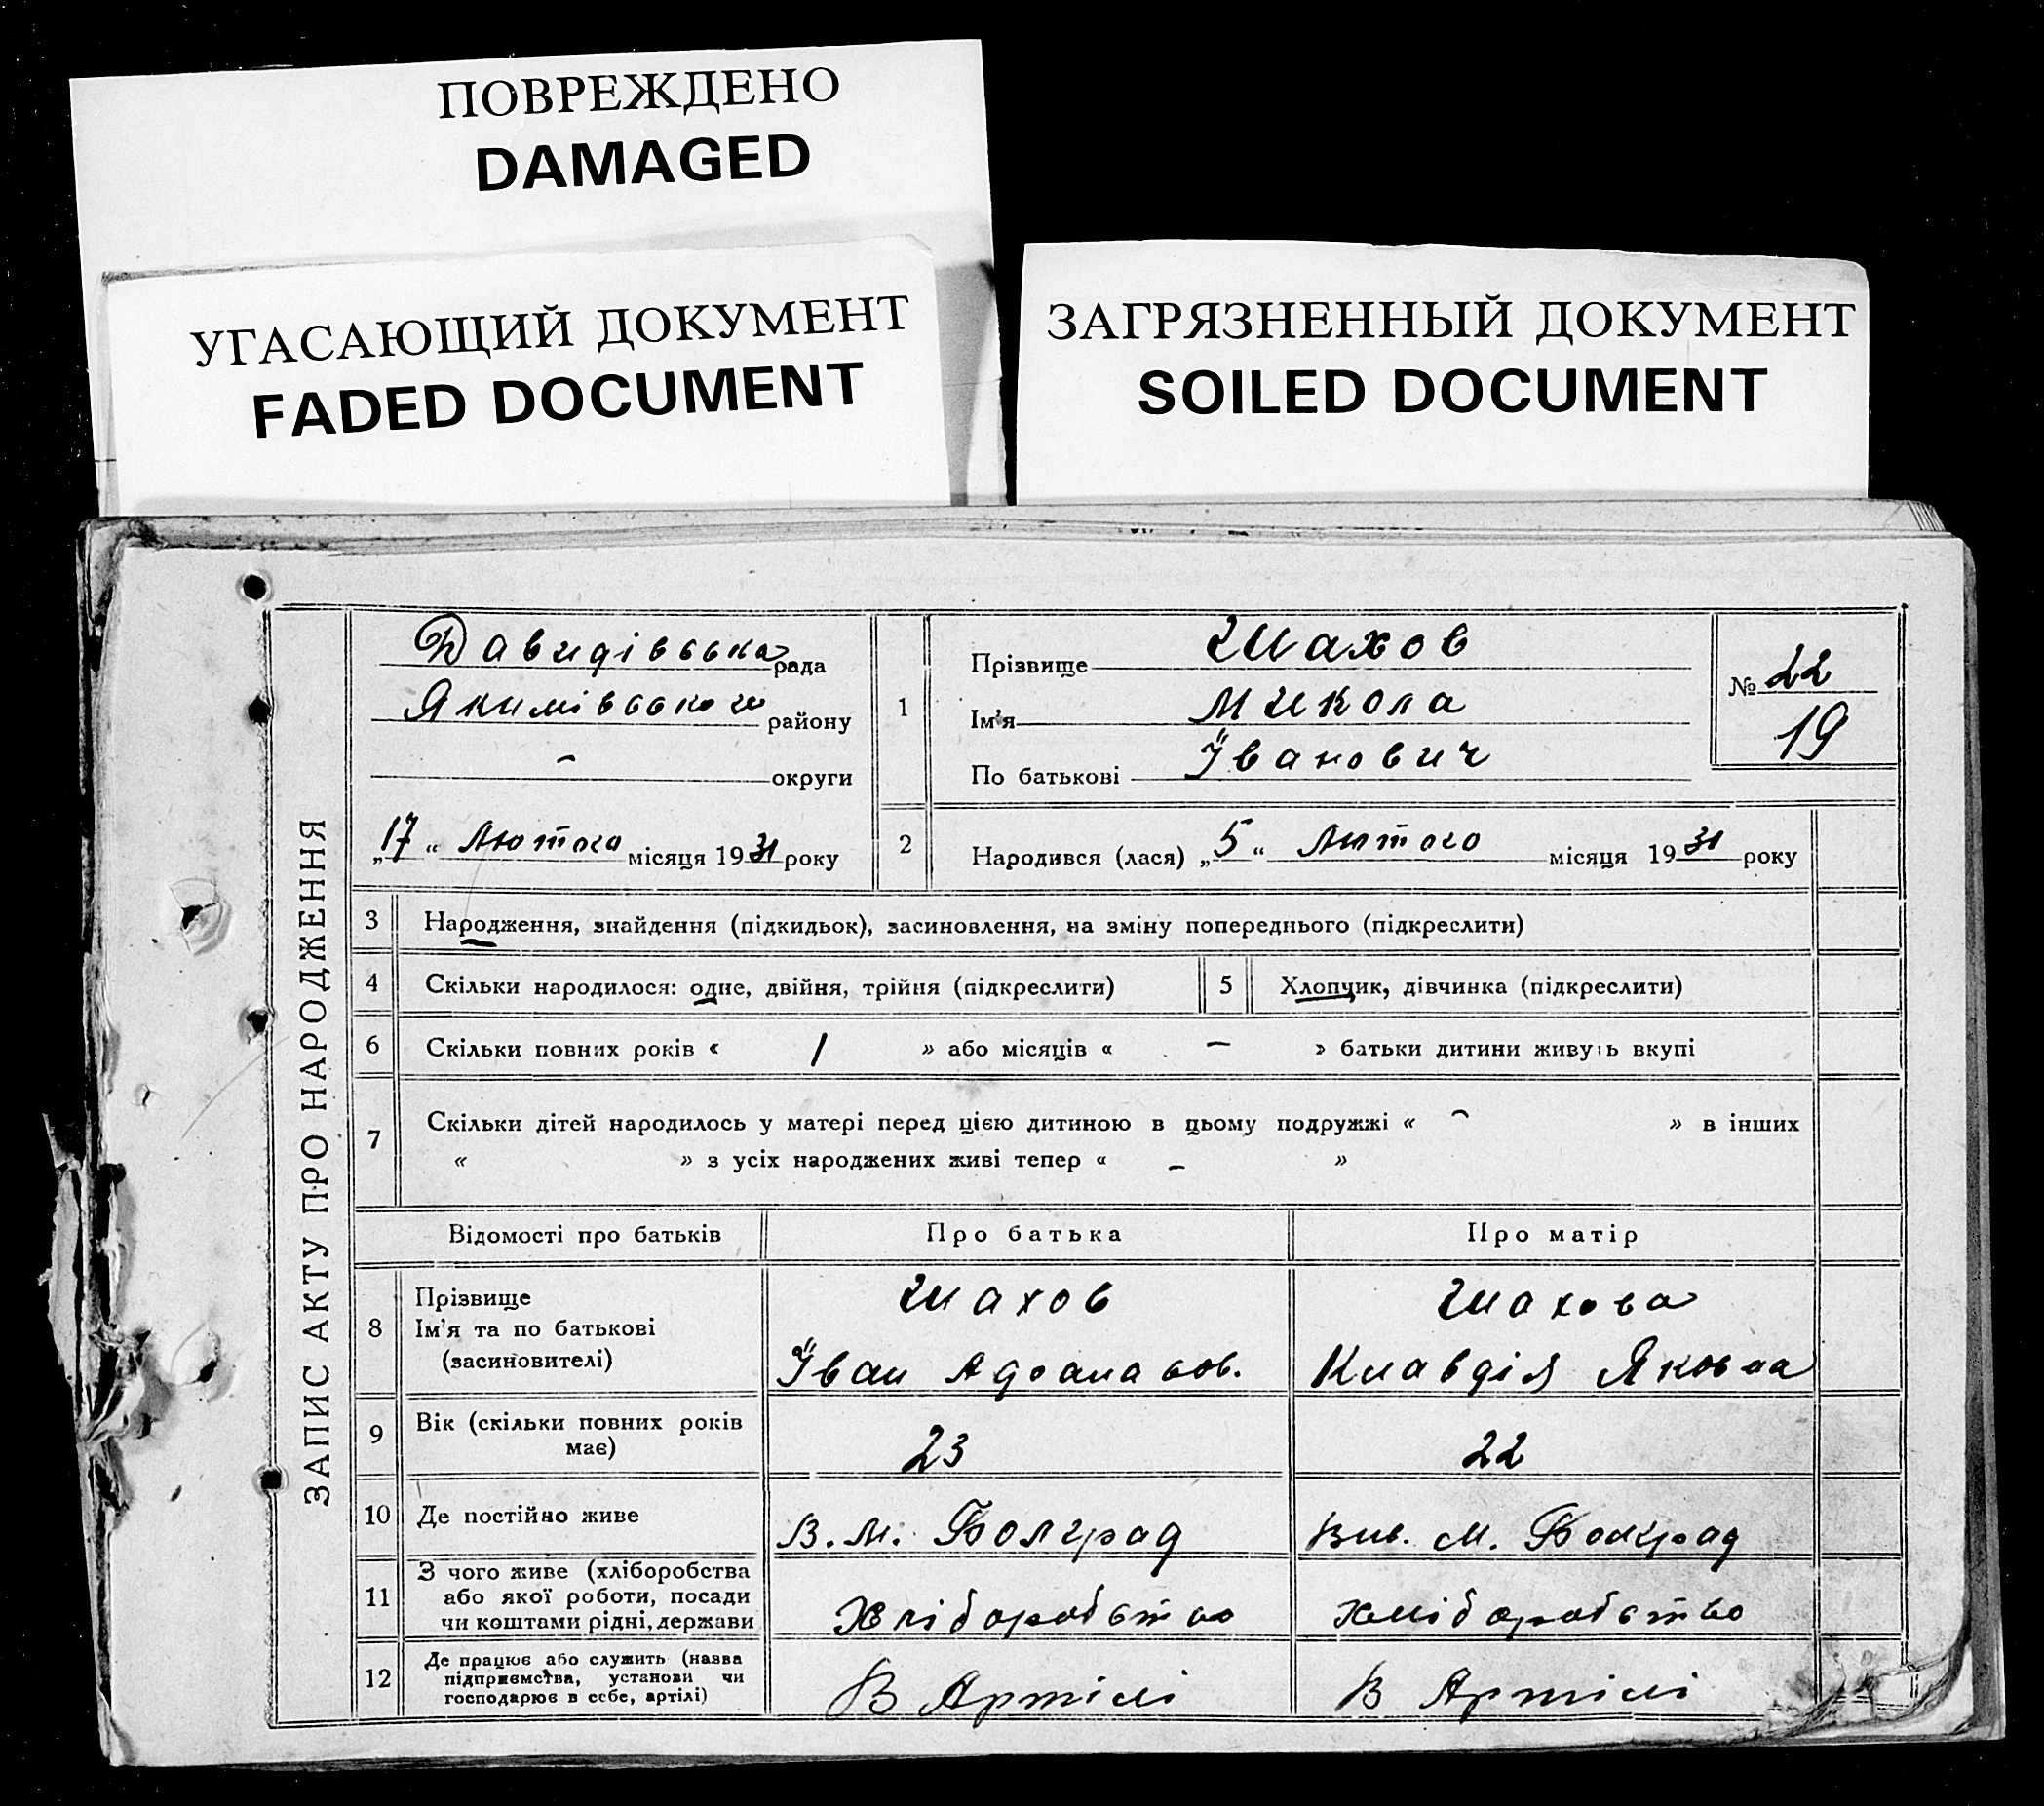 ПОВРЕЖДЕНО
DAMAGED
УГАСАЮЩИЙ ДОКУМЕНТ
FADED DOCUMENT
ЗАГРЯЗНЕННЫЙ ДОКУМЕНТ
SOILED DOCUMENT
ЗАПИС АКТУ ПРО НАРОДЖЕННЯ
Давидівська рада
Якимівської району
— округи
„17“ Лютого місяця 1931 року
1 Прізвище Шахов
Ім'я Микола
По батькові Іванович
№ 22
19
2 Народився (лася) „5“ Лютого місяця 1931 року
3 Народження, знайдення (підкидьок), засиновлення, на зміну попереднього (підкреслити)
4 Скільки народилося: одне, двійня, трійня (підкреслити) 5 Хлопчик, дівчинка (підкреслити)
6 Скільки повних років « 1 » або місяців « — » батьки дитини живуть вкупі
7 Скільки дітей народилось у матері перед цією дитиною в цьому подружжі « — » в інших
« » з усіх народжених живі тепер « — »
Відомості про батьків Про батька Про матір
8 Прізвище
Ім'я та по батькові
(засиновителі)
Шахов
Іван
Шахова
Клавдія Яковна
9 Вік (скільки повних років
має)
23
22
10 Де постійно живе
В. М. Болград
М. Болград
11 З чого живе (хліборобства
або якої роботи, посади
чи коштами рідні, держави
Хліборобство
хліборобство
12 Де працює або служить (назва
підприємства, установи чи
господарює в себе, артілі)
В Артілі
В Артілі